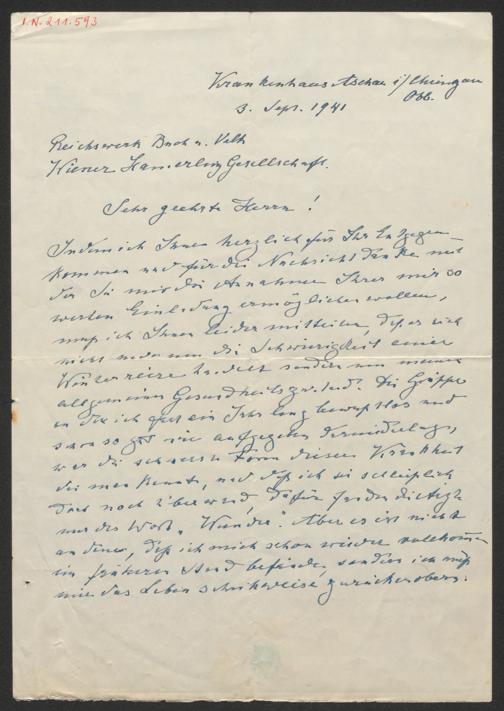 I.N. 211.593
Krankenhaus Aschau i/Chiemgau
Obb.
3. Sept. 1941
Reichswerk Buch u. Volk
Wiener Hamerling Gesellschaft.
Sehr geehrte Herrn!
Indem ich Ihnen herzlich für Ihr Entgegen-
kommen und für die Nachricht danke mit
der Sie mir die Annahme Ihrer mir so
werten Einladung ermöglichen wollen,
muß ich Ihnen leider mitteilen, daß es sich
nicht nur um die Schwierigkeit einer
Winterreise handelt sondern um meinen
allgemeinen Gesundheitszustand. Die Grippe
an der ich fast ein Jahr lang bewußtlos und
schon so gut wie aufgegeben
war die schwerste Form dieser Krankheit
die man kennt, und daß ich sie schließlich
doch noch überwand, dafür
nur das Wort „Wunder“. Aber es ist nicht
an dem, daß ich mich schon wieder vollkommen
im früheren Stand befinde, sondern ich muß
mir das Leben schrittweise zurückerobern.